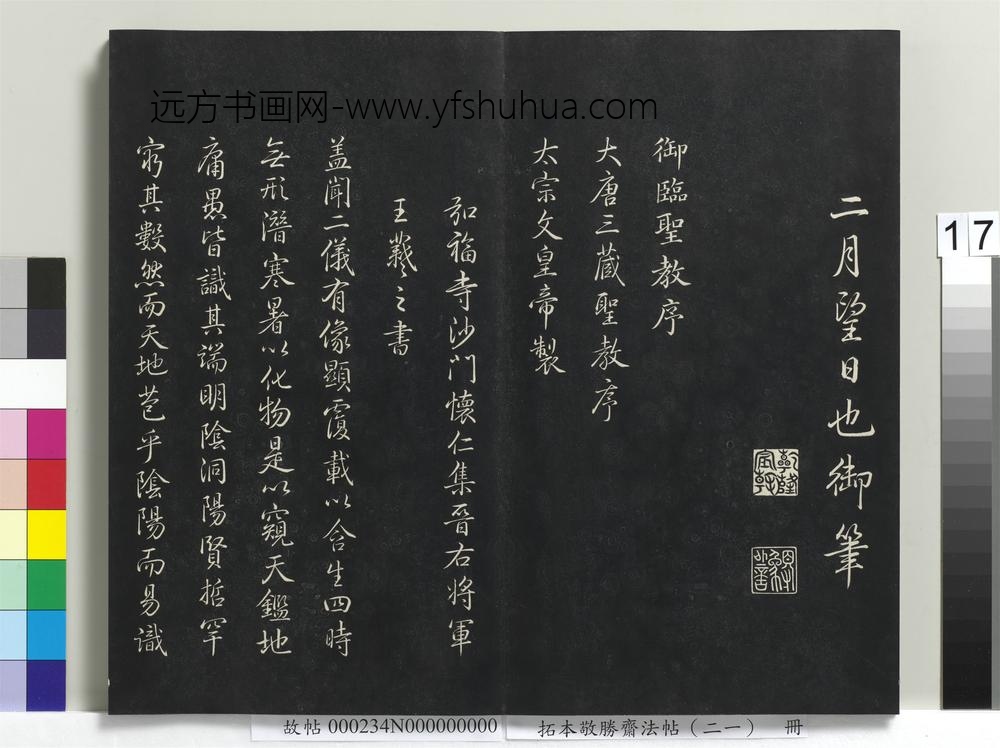 远方书画网-www.yfshuhua.com
二月望日也御筆
御臨聖教序
大唐三藏聖教序
太宗文皇帝製
弘福寺沙門懷仁集晉右將軍
王羲之書
盖聞二儀有像顯覆載以含生四時
無形潛寒暑以化物是以窺天鑑地
庸愚皆識其端明陰洞陽賢哲罕
窮其數然而天地苞乎陰陽而易識
17
故帖 000234N000000000
拓本敬勝齋法帖（二一） 冊